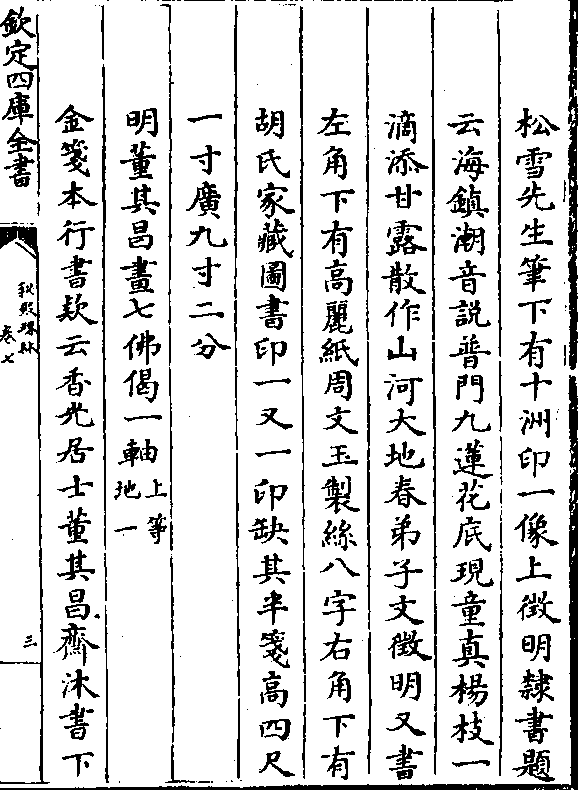 松雪先生筆下有十洲印一像上徴明隸書題
云海鎮潮音説普門九蓮花底現童真楊枝一
滴添甘露散作山河大地春弟子文徴明又書
左角下有髙麗紙周文玉製絲八字右角下有
胡氏家藏圖書印一又一印缺其半箋髙四尺
一寸廣九寸二分
明董其昌畫七佛偈一軸上等地一
金箋本行書欵云香光居士董其昌齋沐書下
欽定四庫全書
秘殿珠林
卷七
三